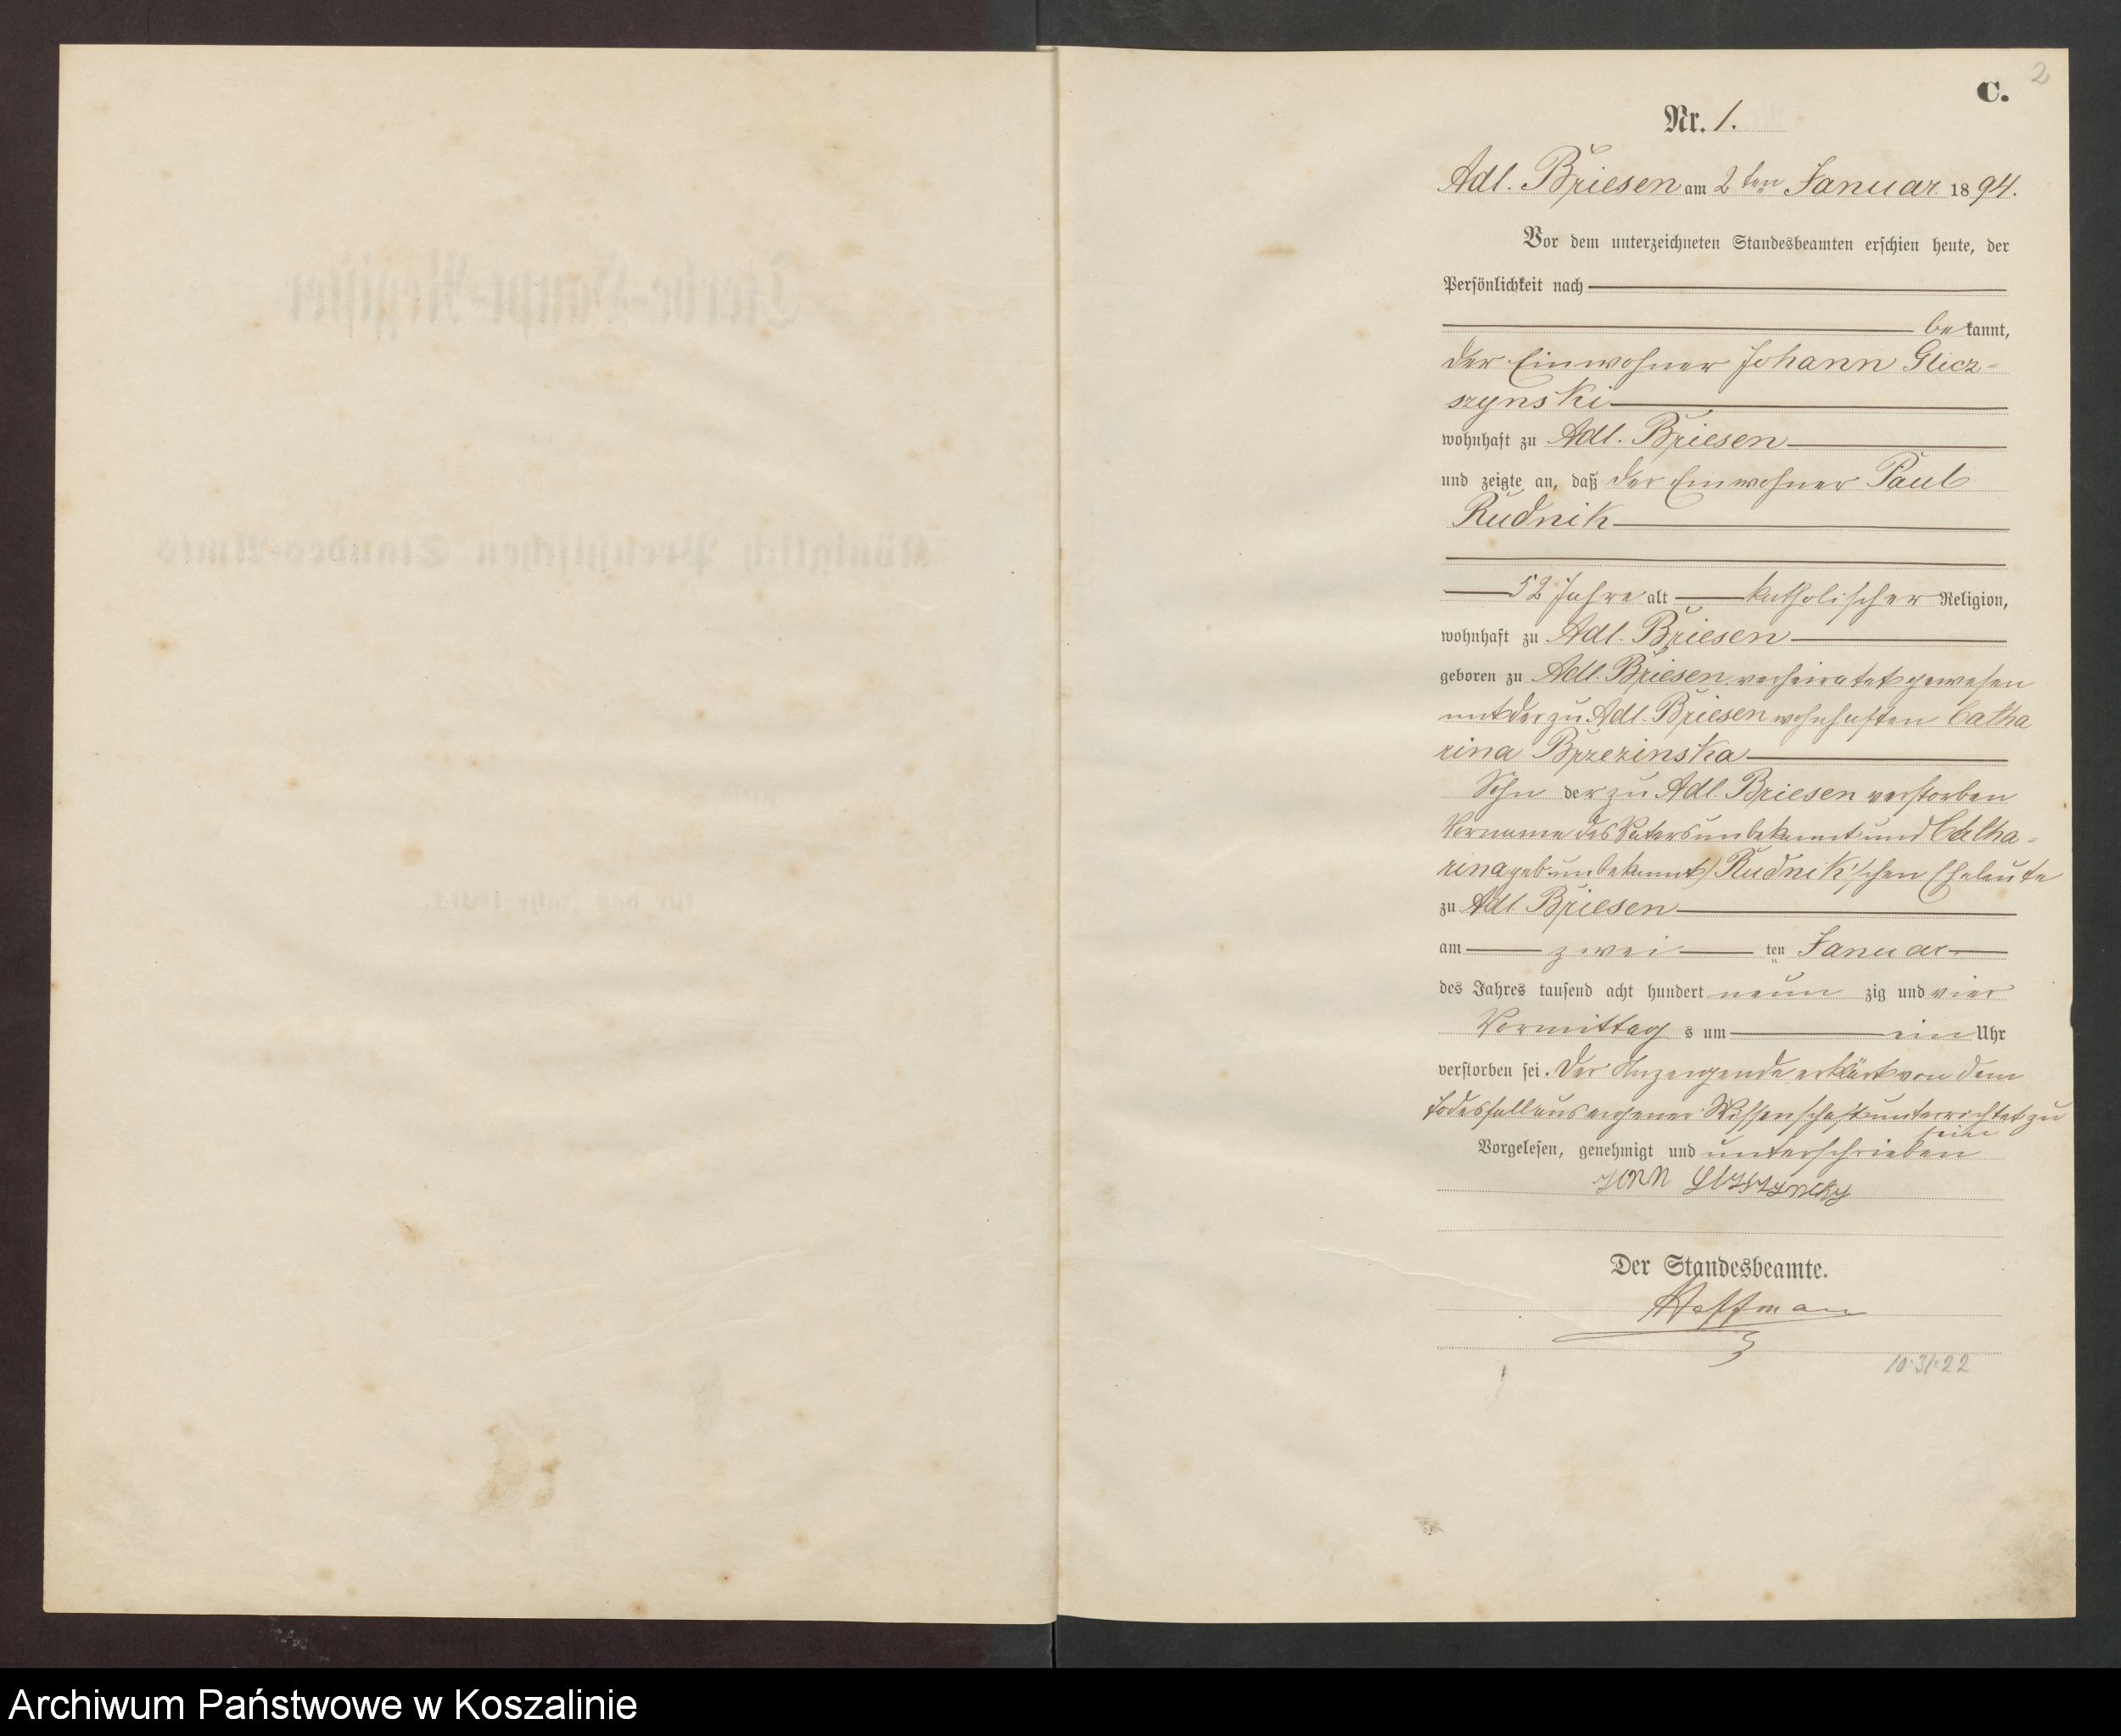 2
C.
Nr. 1.
Adl. Briesen am 2ten Januar 1894.
Vor dem unterzeichneten Standesbeamten erschien heute, der
Persönlichkeit nach
bekannt,
der Einwohner Johann Glicz-
szynski
wohnhaft zu Adl. Briesen
und zeigte an, daß der Einwohner Paul
Rudnik
52 Jahre alt katholischer Religion,
wohnhaft zu Adl. Briesen
geboren zu Adl. Briesen verheiratet gewesen
mit der zu Adl. Briesen wohnhaften Catha
rina Brzezinska
Sohn der zu Adl. Briesen verstorben
Vorname des Vaters unbekannt und Catha-
rina geb. unbekannt) Rudnik'schen Eheleute
zu Adl. Briesen
am zwei ten Januar
des Jahres tausend acht hundert neun zig und vier
Vormittag s um ein Uhr
verstorben sei. Der Anzeigende erklärt von dem
Todesfall aus eigener Wissenschaft unterrichtet zu
sein
Vorgelesen, genehmigt und unterschrieben
Der Standesbeamte.
Hoffman
10·31·22
Sterbe-Haupt-Register
Königlich Preußischen Standes-Amts
für das Jahr 1894.
Archiwum Państwowe w Koszalinie